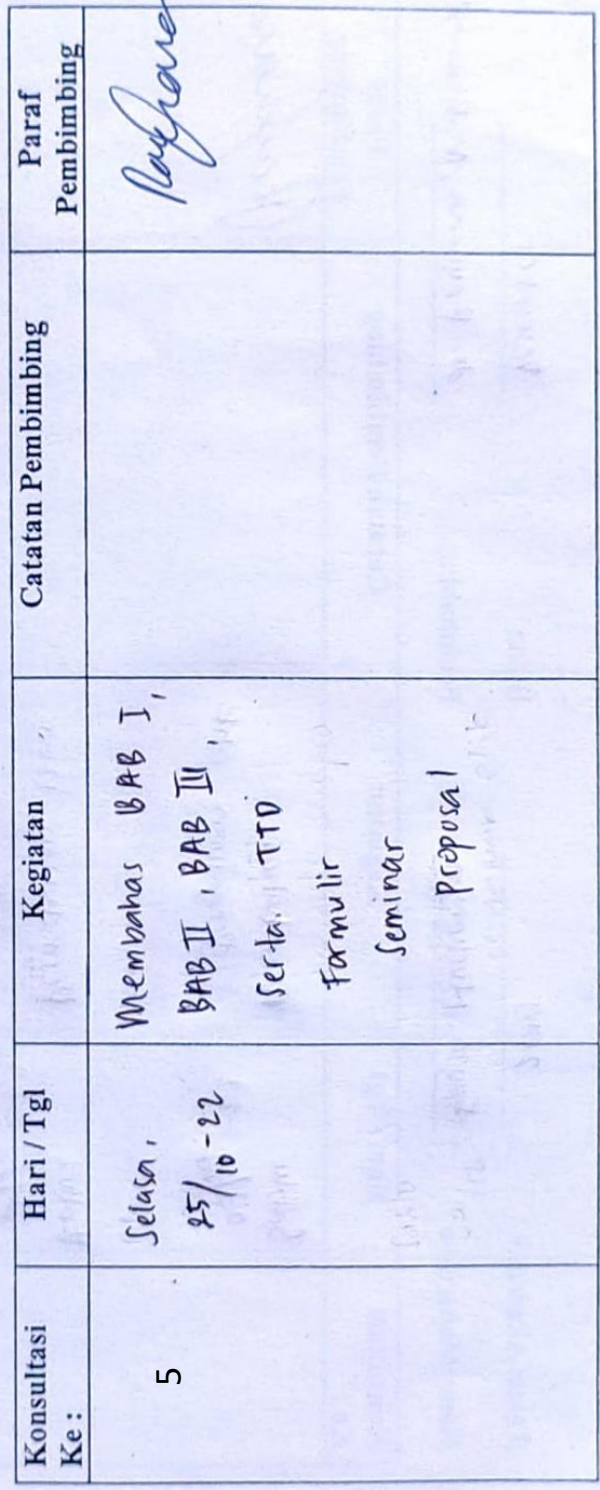 Konsultasi Ke :
Hari / Tgl
Kegiatan
Catatan Pembimbing
Paraf Pembimbing
5
Selasa,
25/10-22
Membahas BAB I,
BAB II, BAB III,
serta TTD
Formulir
Seminar
Proposal